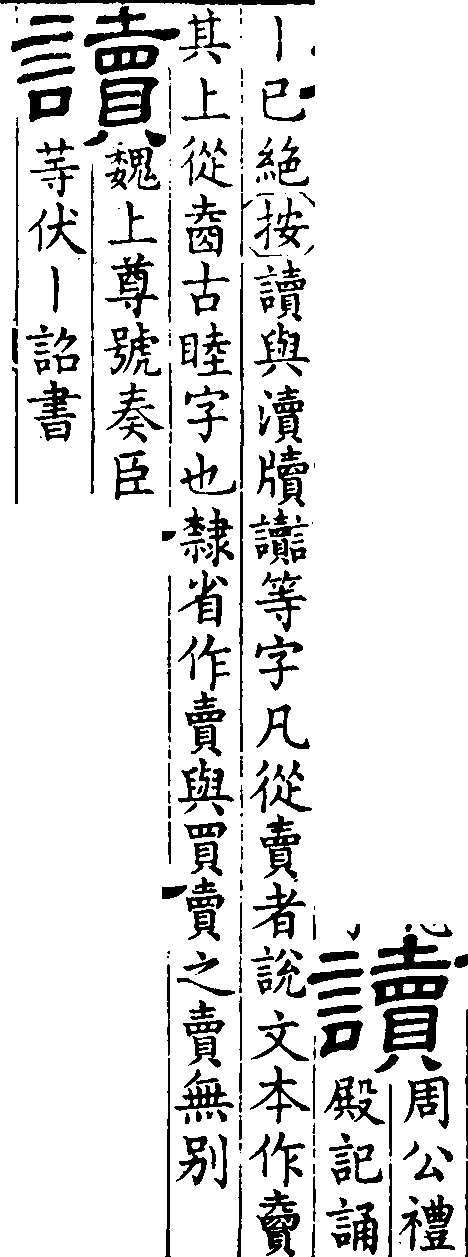 讀
周公禮
殿記誦
丨已絕〔按〕讀與瀆牘讟等字凡從賣者說文本作𧶠
其上從𡍬古睦字也隸省作賣與買賣之賣無别
讀
魏上尊號奏臣
䓁伏丨詔書